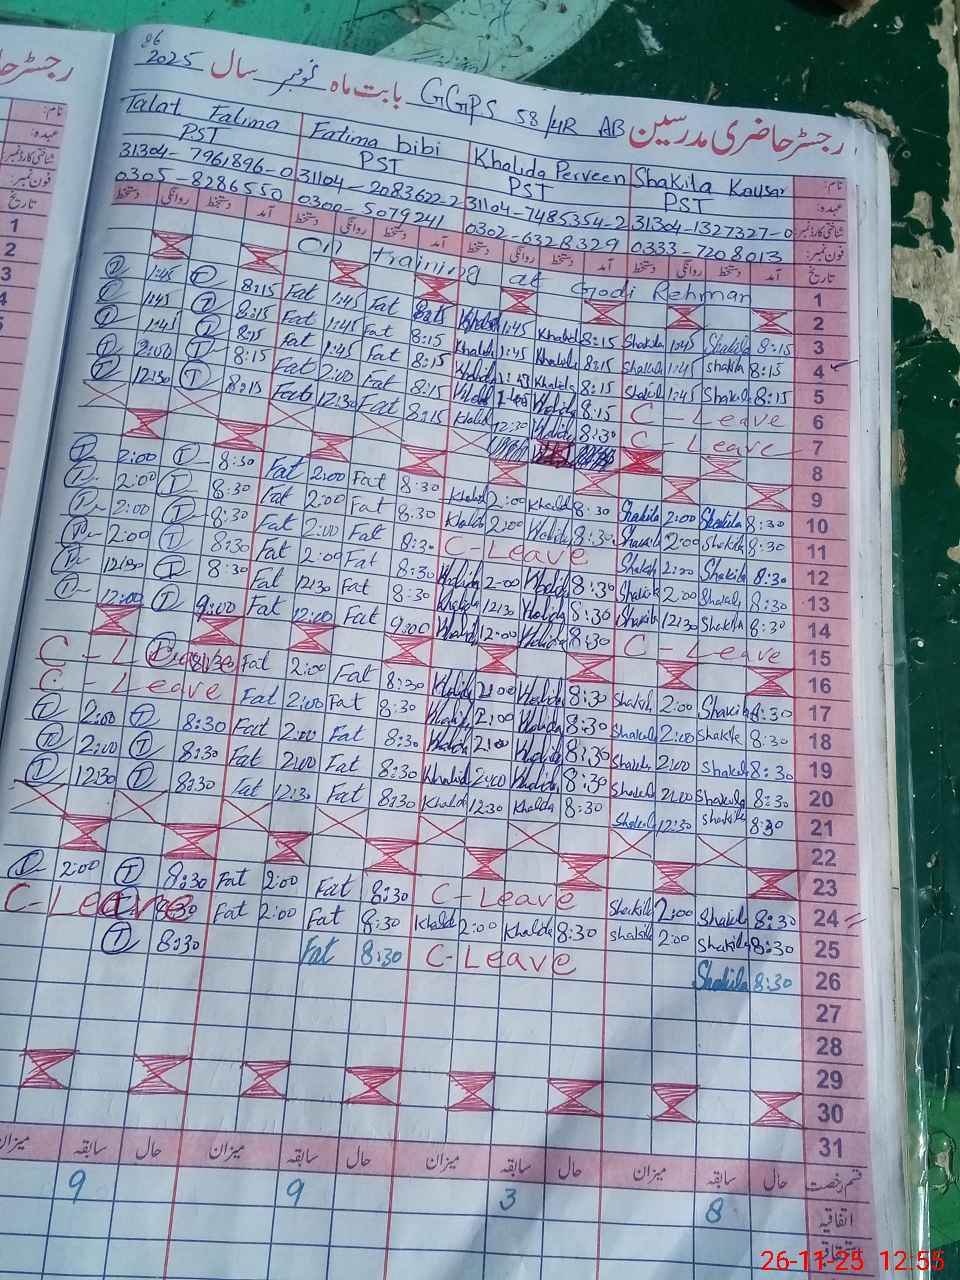 96
رجسٹر حاضری مدرسین GGPS 58/4R AB بابت ماہ نومبر سال 2025
نام: Shakila Kausar Khalida Perveen Fatima bibi Talat Fatima
عہدہ: PST PST PST PST
شناختی کارڈ نمبر 31304-1327327-0 31104-7485354-2 31104-2083622-2 31304-7961896-0
فون نمبر: 0333-7208013 0302-6328329 0300-5079241 0305-8286550
تاریخ آمد دستخط روانگی دستخط آمد دستخط روانگی دستخط آمد دستخط روانگی دستخط آمد دستخط روانگی دستخط
1 On training at Godi Rehman
2
3 8:15 Shakila 1:45 Shakila 8:15 Khalid 1:45 8:15 Fat 1:45 Fat 8:15 T 1:45 T
4 8:15 Shakila 1:45 Shakila 8:15 Khalid 1:45 Khalid 8:15 Fat 1:45 Fat 8:15 T 1:45 T
5 8:15 Shakila 1:45 Shakila 8:15 Khalida 8:15 Fat 1:45 Fat 8:15 T 1:45 T
6 C - Leave 8:15 Khalida 8:15 Fat 2:00 Fat 8:15 T 2:00 T
7 C - Leave 8:30 Khalida 12:30 Khalid 8:15 Fat 12:30 Fat 8:15 T 12:30 T
8
9
10 8:30 Shakila 2:00 Shakila 8:30 Khalid 2:00 Khalid 8:30 Fat 2:00 Fat 8:30 T 2:00 T
11 8:30 Shakila 2:00 Shakila 8:30 Khalida 2:00 Khalid 8:30 Fat 2:00 Fat 8:30 T 2:00 T
12 8:30 Shakila 2:00 Shakila C-Leave 8:30 Fat 2:00 Fat 8:30 T 2:00 T
13 8:30 Shakila 2:00 Shakila 8:30 Khalida 2:00 Khalida 8:30 Fat 2:00 Fat 8:30 T 2:00 T
14 8:30 Shakila 12:30 Shakila 8:30 Khalida 12:30 Khalida 8:30 Fat 12:30 Fat 8:30 T 12:30 T
15 C - Leave 8:30 Khalida 12:00 Khalid 9:00 Fat 12:00 Fat 9:00 T 12:00 T
16
17 8:30 Shakila 2:00 Shakila 8:30 Khalida 2:00 Khalida 8:30 Fat 2:00 Fat C - Leave
18 8:30 Shakila 2:00 Shakila 8:30 Khalida 2:00 Khalida 8:30 Fat 2:00 Fat C - Leave
19 8:30 Shakila 2:00 Shakila 8:30 Khalida 2:00 Khalida 8:30 Fat 2:00 Fat 8:30 T 2:00 T
20 8:30 Shakila 2:00 Shakila 8:30 Khalida 2:00 Khalid 8:30 Fat 2:00 Fat 8:30 T 2:00 T
21 8:30 Shakila 12:30 Shakila 8:30 Khalda 12:30 Khalid 8:30 Fat 12:30 Fat 8:30 T 12:30 T
22
23
24 8:30 Shakila 2:00 Shakila C - Leave 8:30 Fat 2:00 Fat 8:30 T 2:00 T
25 8:30 Shakila 2:00 Shakila 8:30 Khalda 2:00 Khalda 8:30 Fat 2:00 Fat C-Leave
26 8:30 Shakila C-Leave 8:30 Fat 8:30 T
27
28
29
30
31
قسم رخصت حال سابقہ میزان حال سابقہ میزان حال سابقہ میزان حال سابقہ میزان
اتفاقیہ 8 3 9 9
26-11-25 12:55